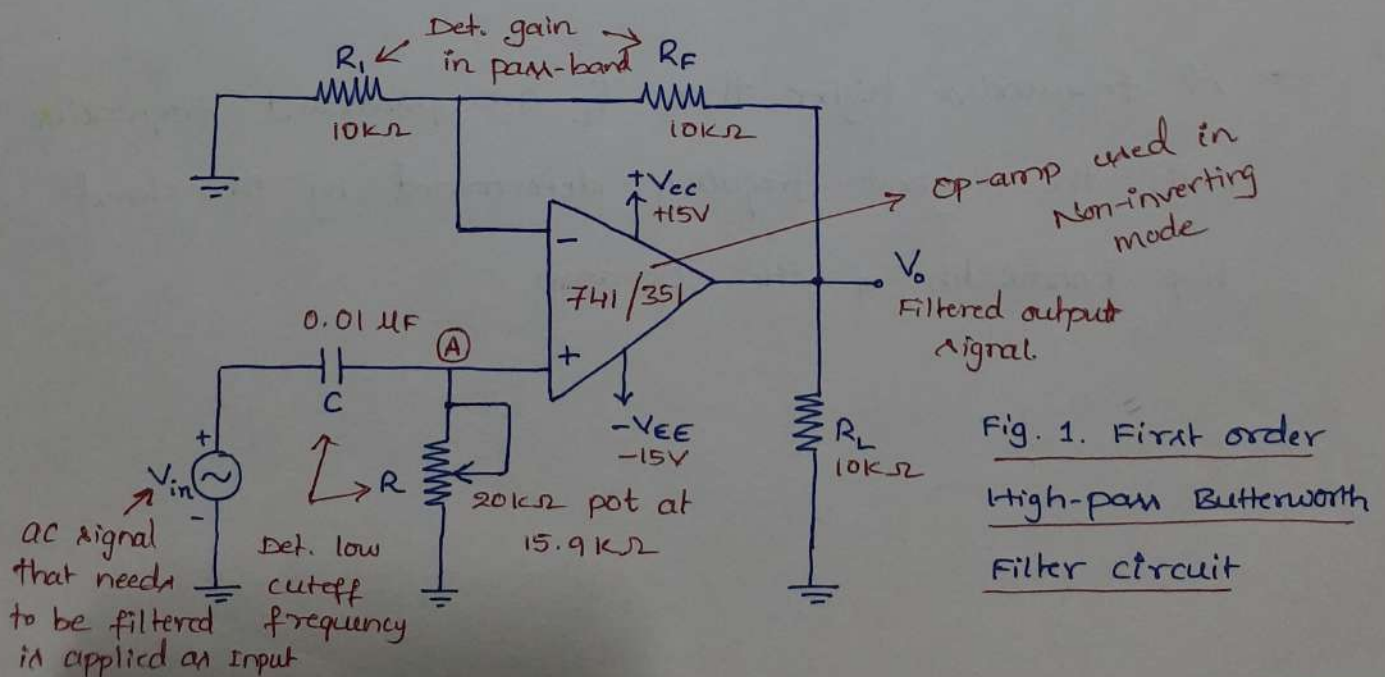 Det. gain
in pass-band
R1
10KΩ
RF
10KΩ
+Vcc
+15V
-
741/351
+
-VEE
-15V
Op-amp used in
Non-inverting
mode
Vo
Filtered output
signal.
0.01 µF
C
A
+
Vin
-
R
20KΩ pot at
15.9KΩ
RL
10KΩ
ac signal
that needs
to be filtered
is applied as Input
Det. low
cutoff
frequency
Fig. 1. First order
High-pass Butterworth
Filter circuit